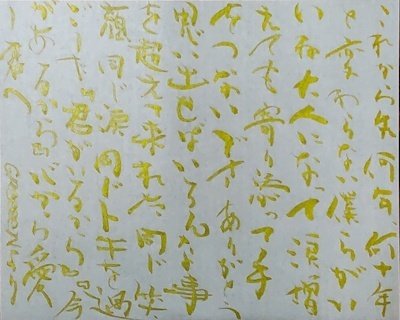 これから先何年、何十年
と変わらない僕らがい
いね大人になって涙増
えても寄り添って手
をつないでありがとう
思い出せばいろんな事
を超えて来れた同じ笑
顔同じ涙同じ日々を過
ごした『君がいるから』『今
があるから』心から愛
君へ GREEEEN より